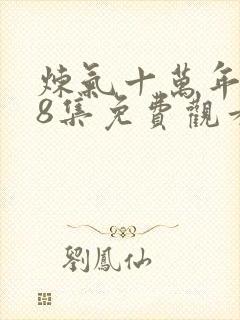 煉氣十萬年
8集免費觀
劉鳳仙